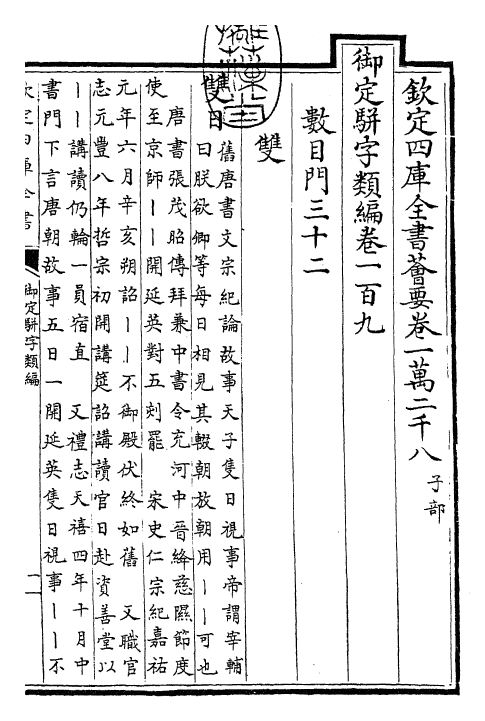 欽定四庫全書薈要卷一萬二千八 子部
御定駢字類編卷一百九
數目門三十二
雙
雙日
舊唐書文宗紀論故事天子隻日視事帝謂宰輔
曰朕欲卿等每日相見其輟朝放朝用丨丨可也
唐書張茂昭傳拜兼中書令充河中晉絳慈隰節度
使至京師丨丨開延英對五刻罷 宋史仁宗紀嘉祐
元年六月辛亥朔詔丨丨不御殿伏終如舊 又職官
志元豐八年哲宗初開講筵詔講讀官日赴資善堂以
丨丨講讀仍輪一員宿直 又禮志天禧四年十月中
書門下言唐朝故事五日一開延英隻日視事丨丨不
欽定四庫全書
御定駢字類編
一